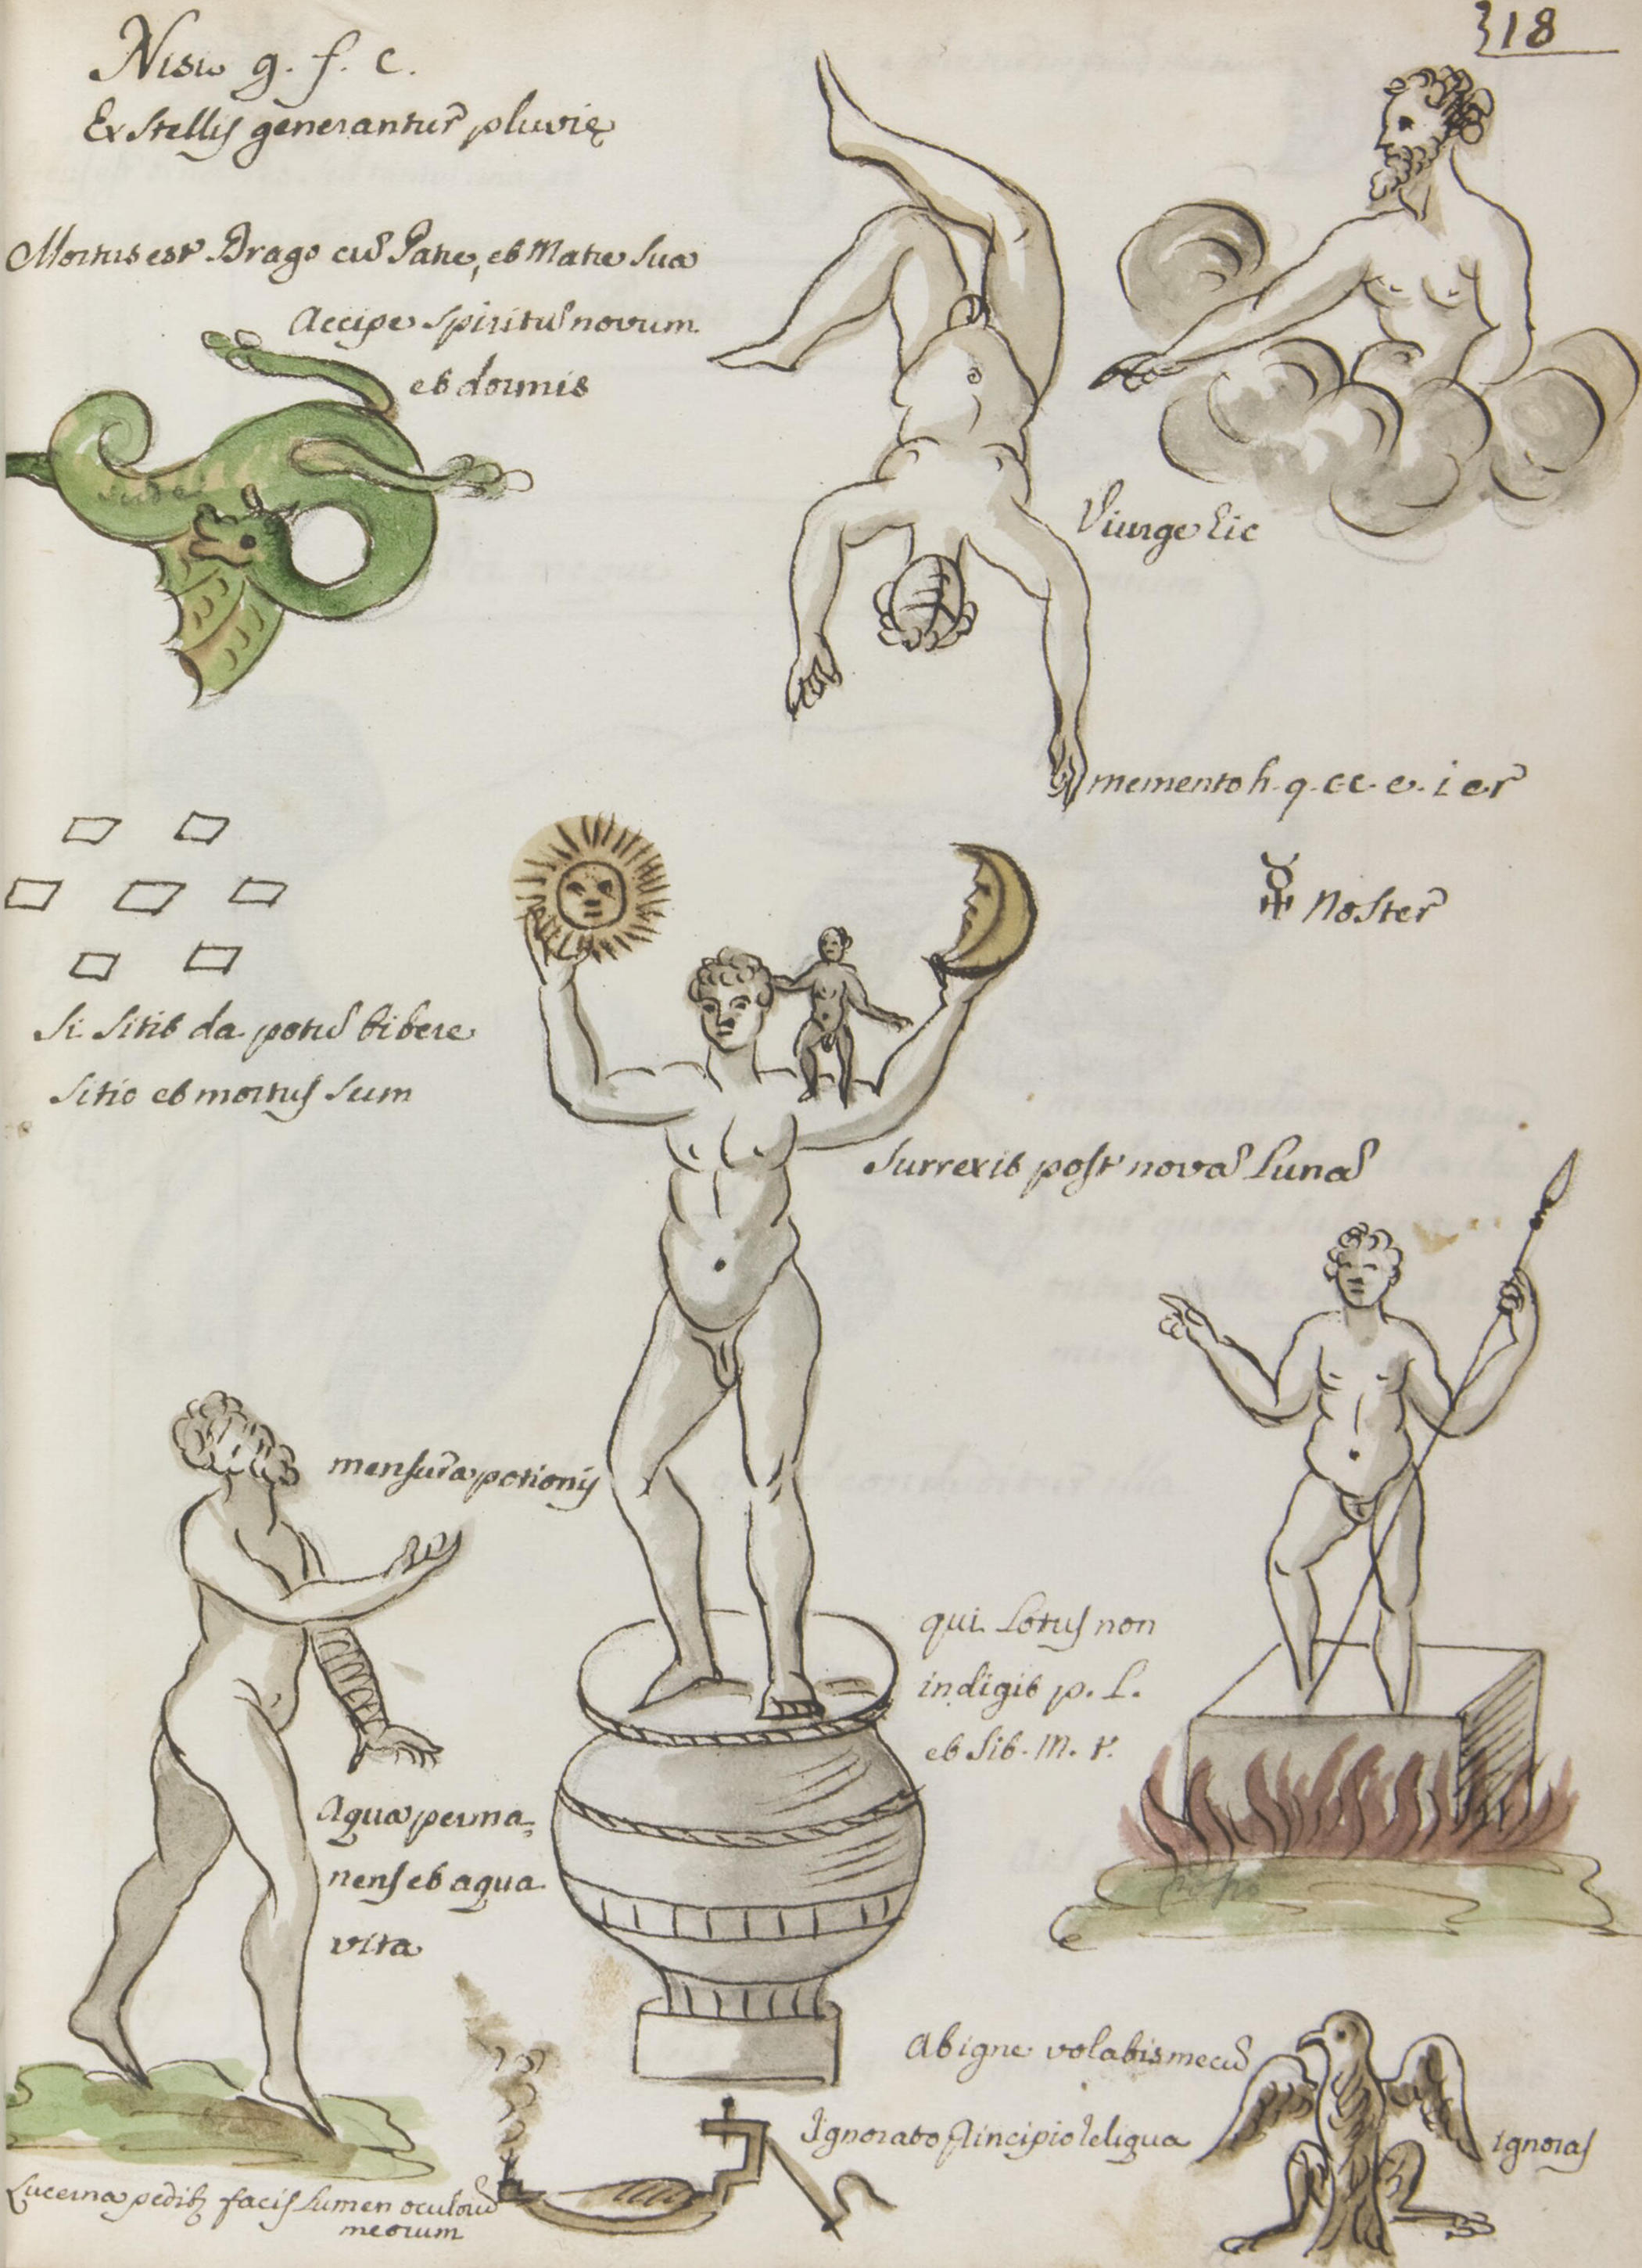 318
Nisi g. f. c.
Ex stellis generantur pluvię
Mortus est Drago cũ Patre, et Matre sua
Accipe spiritũ novum
et dormis
Viurge sic
memento h. q. cc. e. i er
☿ noster
si sitit da potũ bibere
sitio et mortus sum
surrexit post novã lunã
mensura potionis
qui lotus non
indigit p. L.
et sit. M. t.
Aqua perma⸗
nens et aqua
vita
Ab igne volabis mecũ
Ignorato Principio Reliqua
ignoras
Lucerna pedibꝫ facis lumen oculorũ
meorum